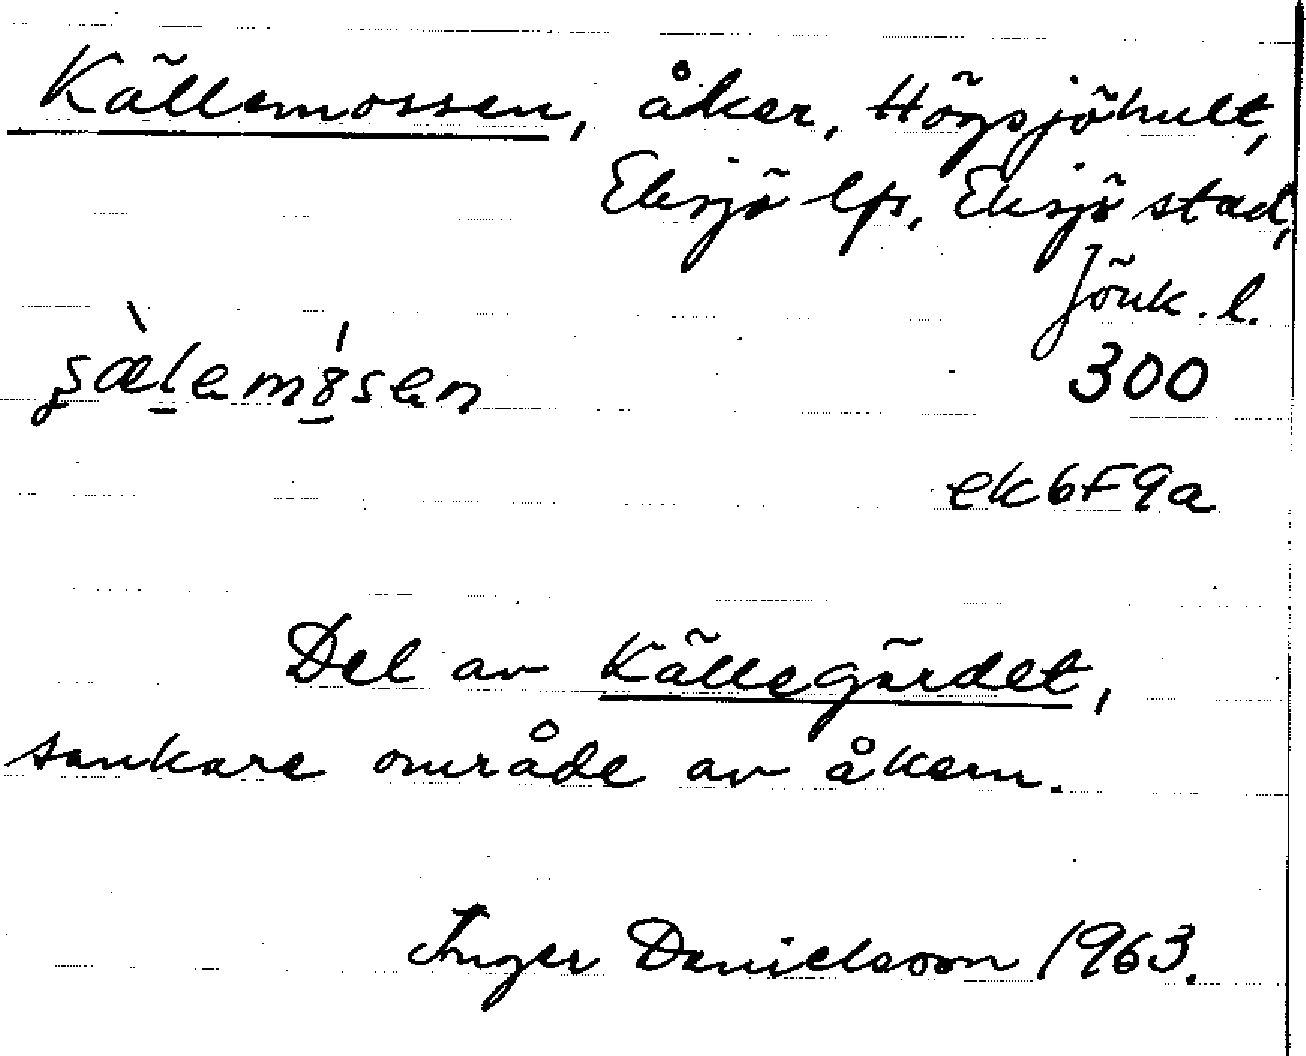 Källemossen, åker, Högsjöhult,
Eksjö lfs, Eksjö stad,
Jönk. l.
300
ek6F9a
Del av Källegärdet,
sankare område av åkern.
Inger Danielsson 1963.